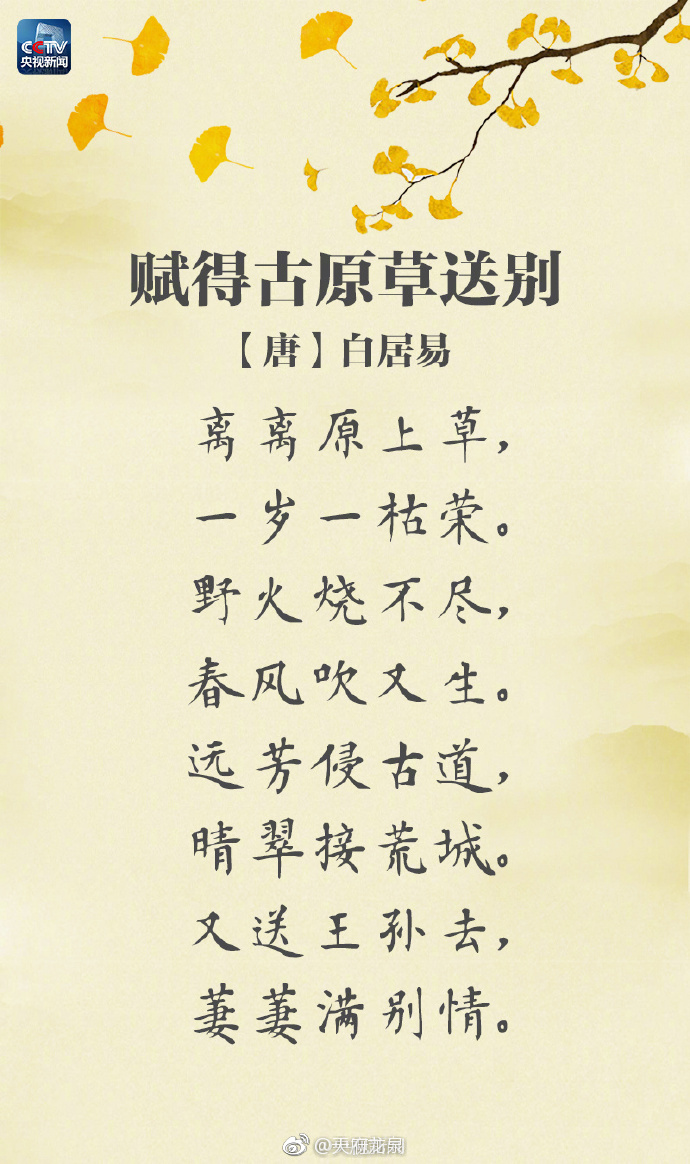 CCTV
央视新闻
赋得古原草送别
【唐】白居易
离离原上草，
一岁一枯荣。
野火烧不尽，
春风吹又生。
远芳侵古道，
晴翠接荒城。
又送王孙去，
萋萋满别情。